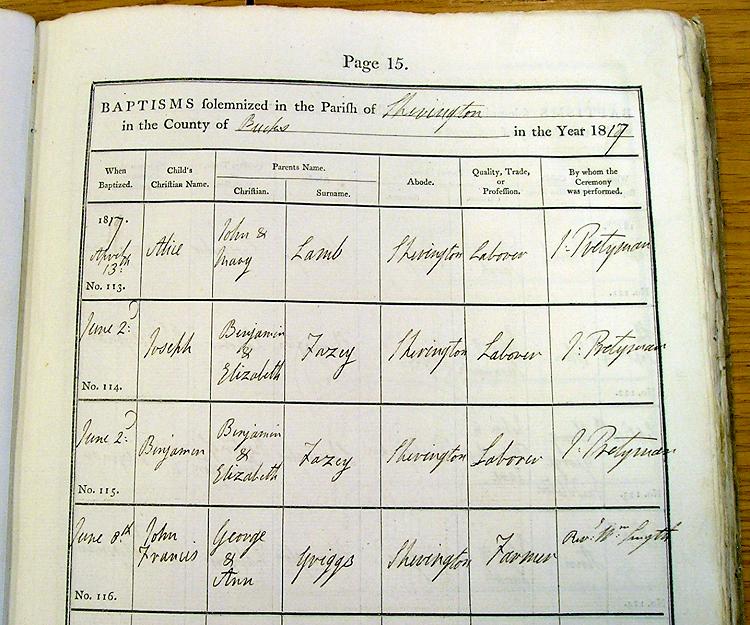 Page 15.
BAPTISMS solemnized in the Parish of Sherington
in the County of Bucks in the Year 1817
When Baptized.
Child's Christian Name.
Parents Name.
Christian.
Surname.
Abode.
Quality, Trade, or Profession.
By whom the Ceremony was performed.
1817.
April 13th
No. 113.
Alice
John &
Mary
Lamb
Sherington
Laborer
J: Pretyman
June 2d:
No. 114.
Joseph
Benjamin
&
Elizabeth
Fazey
Sherington
Laborer
J: Pretyman
June 2d:
No. 115.
Benjamin
Benjamin
&
Elizabeth
Fazey
Sherington
Laborer
J: Pretyman
June 8th
No. 116.
John
Francis
George
&
Ann
Griggs
Sherington
Farmer
Revd. Wm